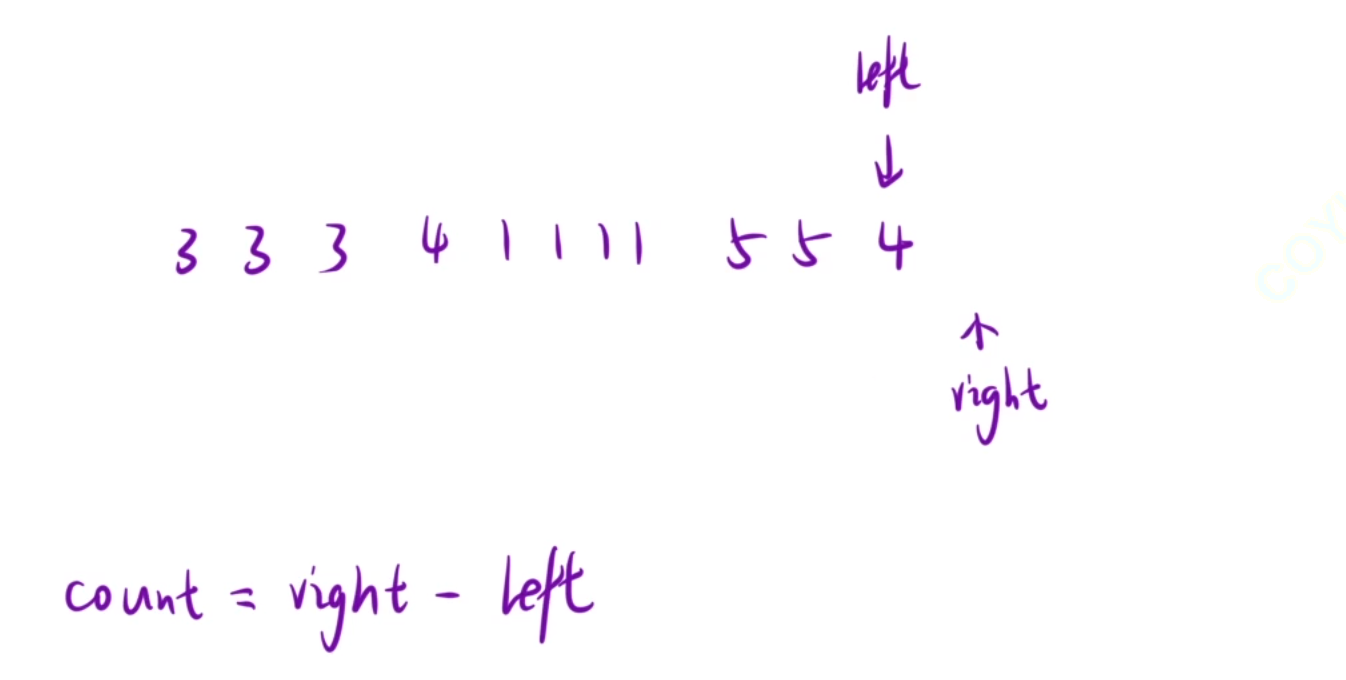 left
↓
3 3 3 4 1 1 1 1 5 5 4
↑
right
count = right - left